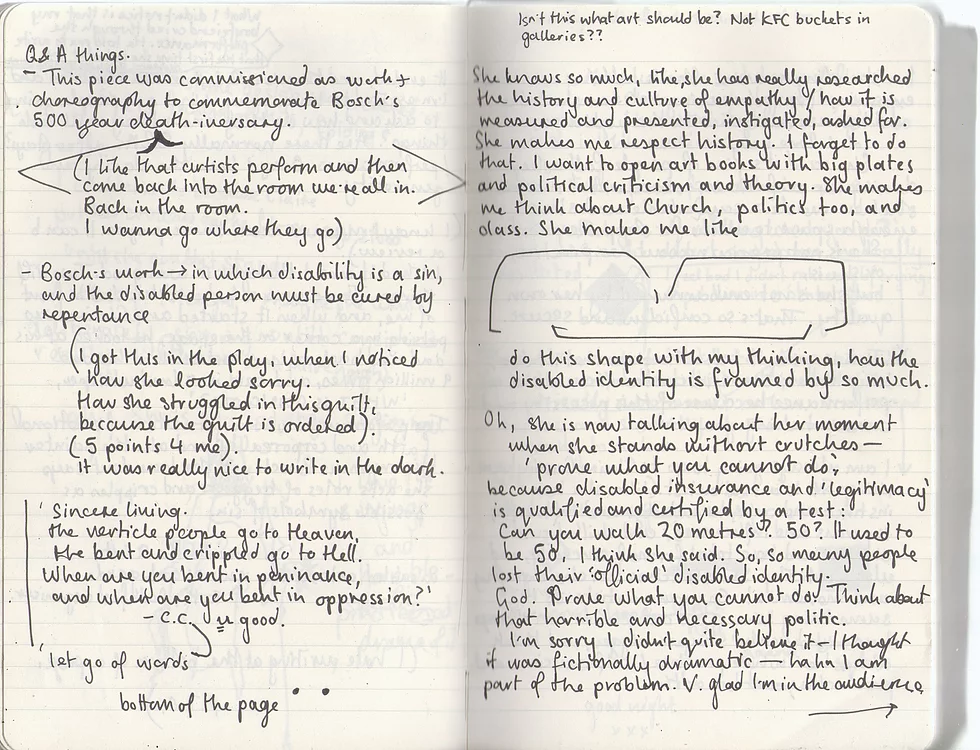 Q&A things.
- This piece was commissioned as work +
choreography to commemorate Bosch's
500 year death-iversary.
(I like that artists perform and then
come back into the room we're all in.
Back in the room.
I wanna go where they go)
- Bosch's work → in which disability is a sin,
and the disabled person must be cured by
repentance
(I got this in the play, when I noticed
how she looked sorry.
How she struggled in this guilt,
because the guilt is ordered).
(5 points 4 me).
It was really nice to write in the dark.
'Sincere lining.
the verticle people go to Heaven,
the bent and crippled go to Hell.
When are you bent in peninance,
and when are you bent in oppression?'
- C.C. u good.
'let go of words'
bottom of the page
Isn't this what art should be? Not KFC buckets in
galleries??
She knows so much, like, she has really researched
the history and culture of empathy / how it is
measured and presented, instigated, asked for.
She makes me respect history. I forget to do
that. I want to open art books with big plates
and political criticism and theory. She makes
me think about Church, politics too, and
class. She makes me like
do this shape with my thinking, how the
disabled identity is framed by so much.
Oh, she is now talking about her moment
when she stands without crutches —
'prove what you cannot do',
because disabled insurance and 'legitimacy'
is qualified and certified by a test:
Can you walk 20 metres? 50? It used to
be 50, I think she said. So, so many people
lost their 'official' disabled identity.
God. Prove what you cannot do! Think about
that horrible and necessary politic.
I'm sorry I didn't quite believe it - I thought
it was fictionally dramatic — haha I am
part of the problem. V. glad I'm in the audience